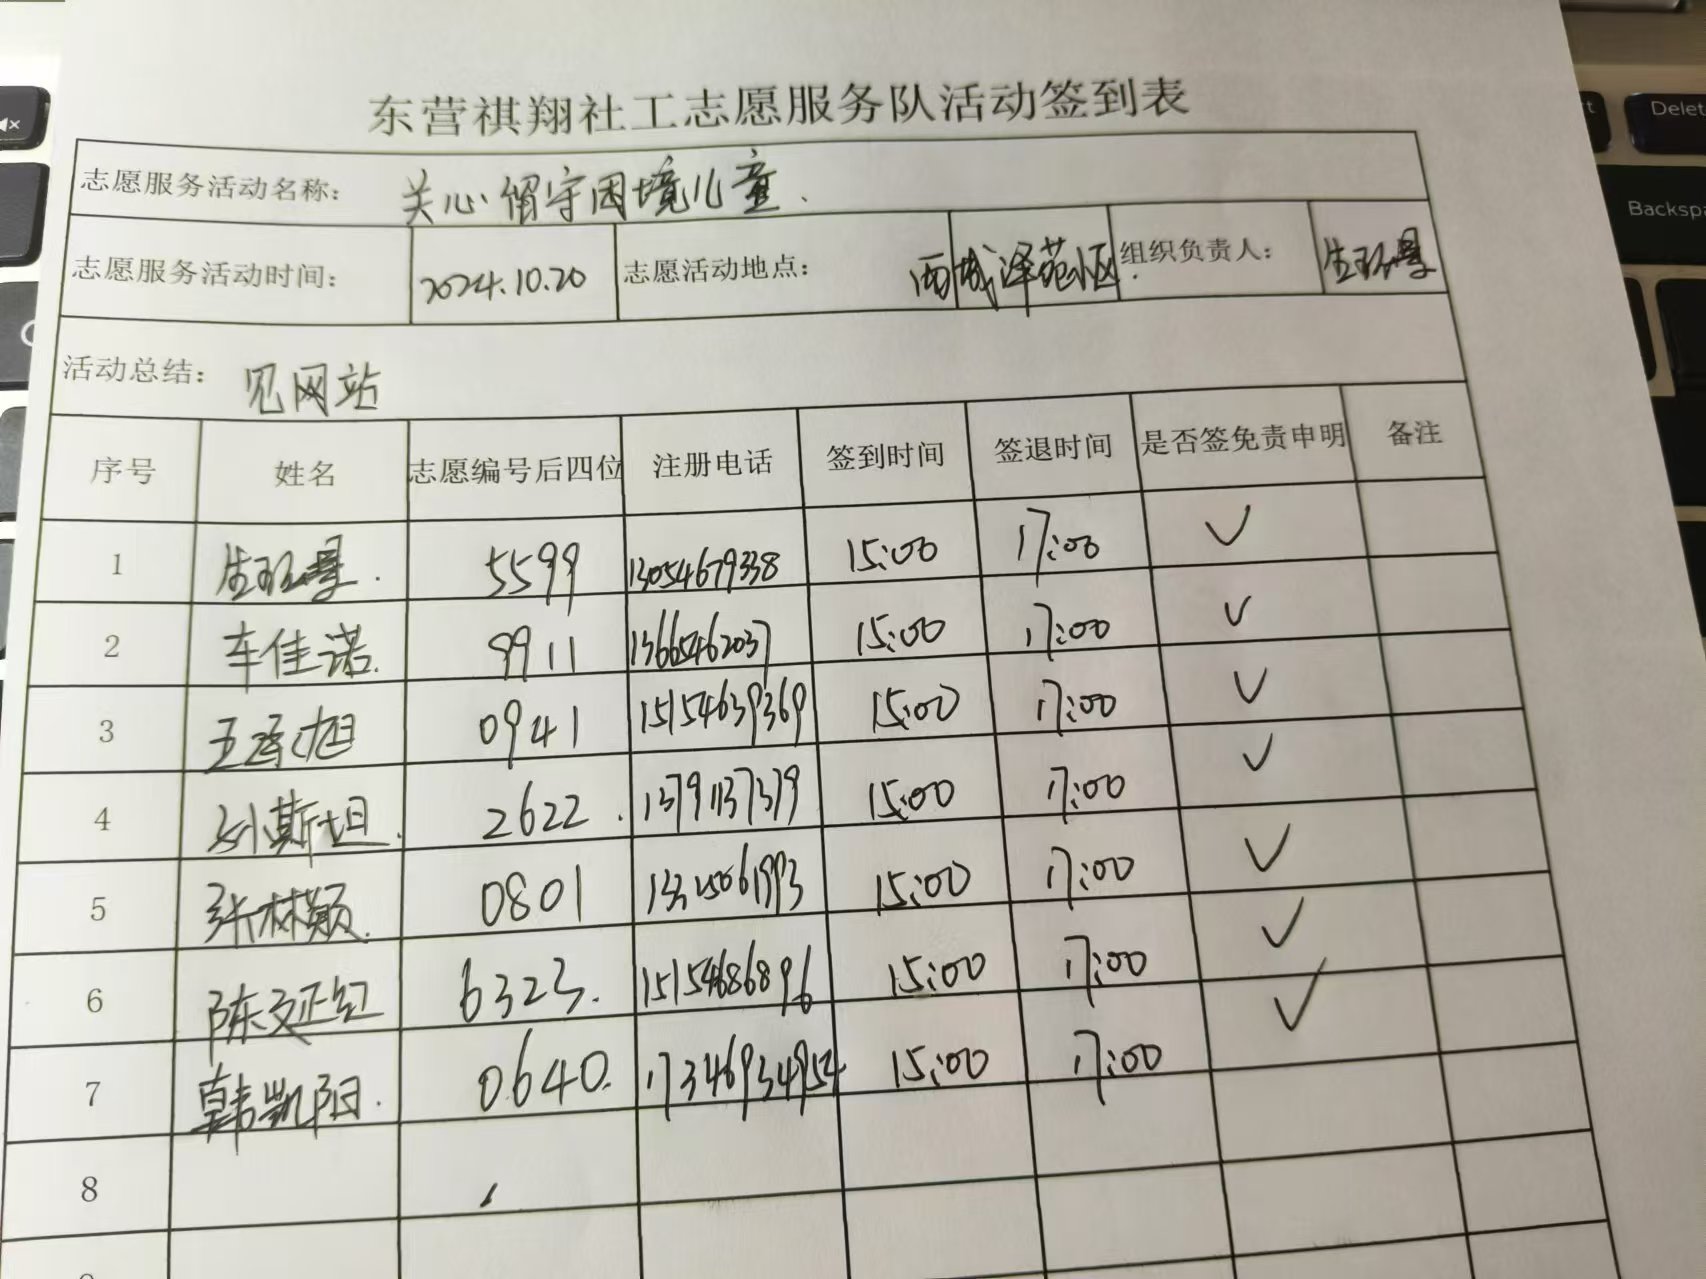 东营祺翔社工志愿服务队活动签到表
志愿服务活动名称: 关心留守困境儿童.
志愿服务活动时间: 2024.10.20 志愿活动地点: 西城泽苑小区. 组织负责人:
活动总结: 见网站
序号 姓名 志愿编号后四位 注册电话 签到时间 签退时间 是否签免责申明 备注
1 5599 13054679338 15:00 17:00 ✓
2 车佳诺. 9911 13665462037 15:00 17:00 ✓
3 王承旭 0941 15154639369 15:00 17:00 ✓
4 刘斯坦. 2622. 13791137379 15:00 17:00 ✓
5 张林颖. 0801 15:00 17:00 ✓
6 6323. 15154686896 15:00 17:00 ✓
7 韩凯阳. 0640. 17346934954 15:00 17:00 ✓
8
Delet
Backspa